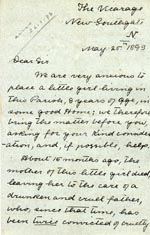 The Vicarage
New Southgate
N.
May 25th 1893
Dear Sir
We are very anxious to
place a little girl living in
this Parish, 9 years of age, in
some good Home; we therefore
bring the matter before you,
asking for your kind consider
-ation, and, if possible, help.
About 15 months ago, the
mother of this little girl died,
leaving her to the care of a
drunken and cruel father,
who, since that time, has
been twice convicted of cruelty